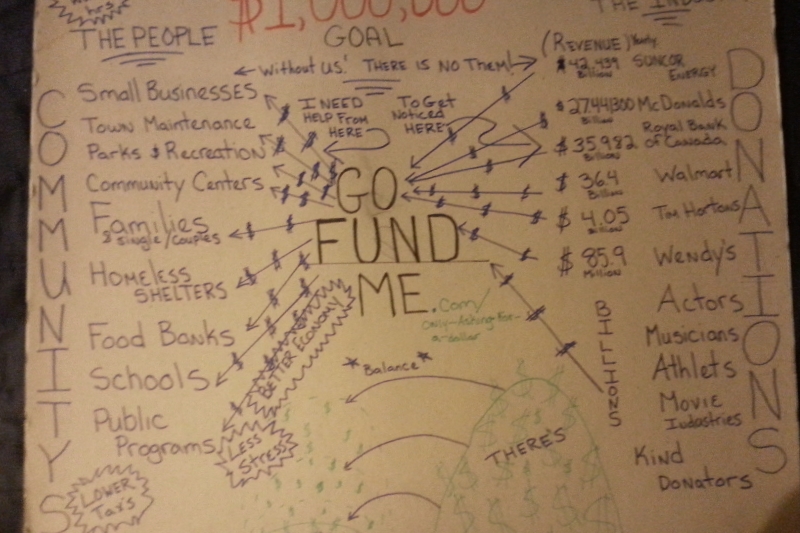 hrs
THE PEOPLE
$1,000,000
GOAL
THE INDUS
← Without US! THERE IS NO Them! →
COMMUNITYS
Small Businesses
Town Maintenance
Parks & Recreation
Community Centers
Families
& single/couples
Homeless
SHELTERS
Food Banks
Schools
Public
Programs
LOWER
Tax's
I NEED
HELP From
HERE
To Get
Noticed
HERE
GO
FUND
ME.com/
only-Asking-For-
a-dollar
BETTER ECONOMY
LESS
Stress
*Balance*
THERE'S
(REVENUE) Yearly
$42,439 SUNCOR
Billion ENERGY
$27441300 McDonalds
Billion
$35.982 Royal Bank
Billion of Canada
$36.4 Walmart
Billion
$4.05 Tim Hortons
Billion
$85.9 Wendy's
Million
BILLIONS
Actors
Musicians
Athlets
Movie
Industries
Kind
Donators
DONATIONS